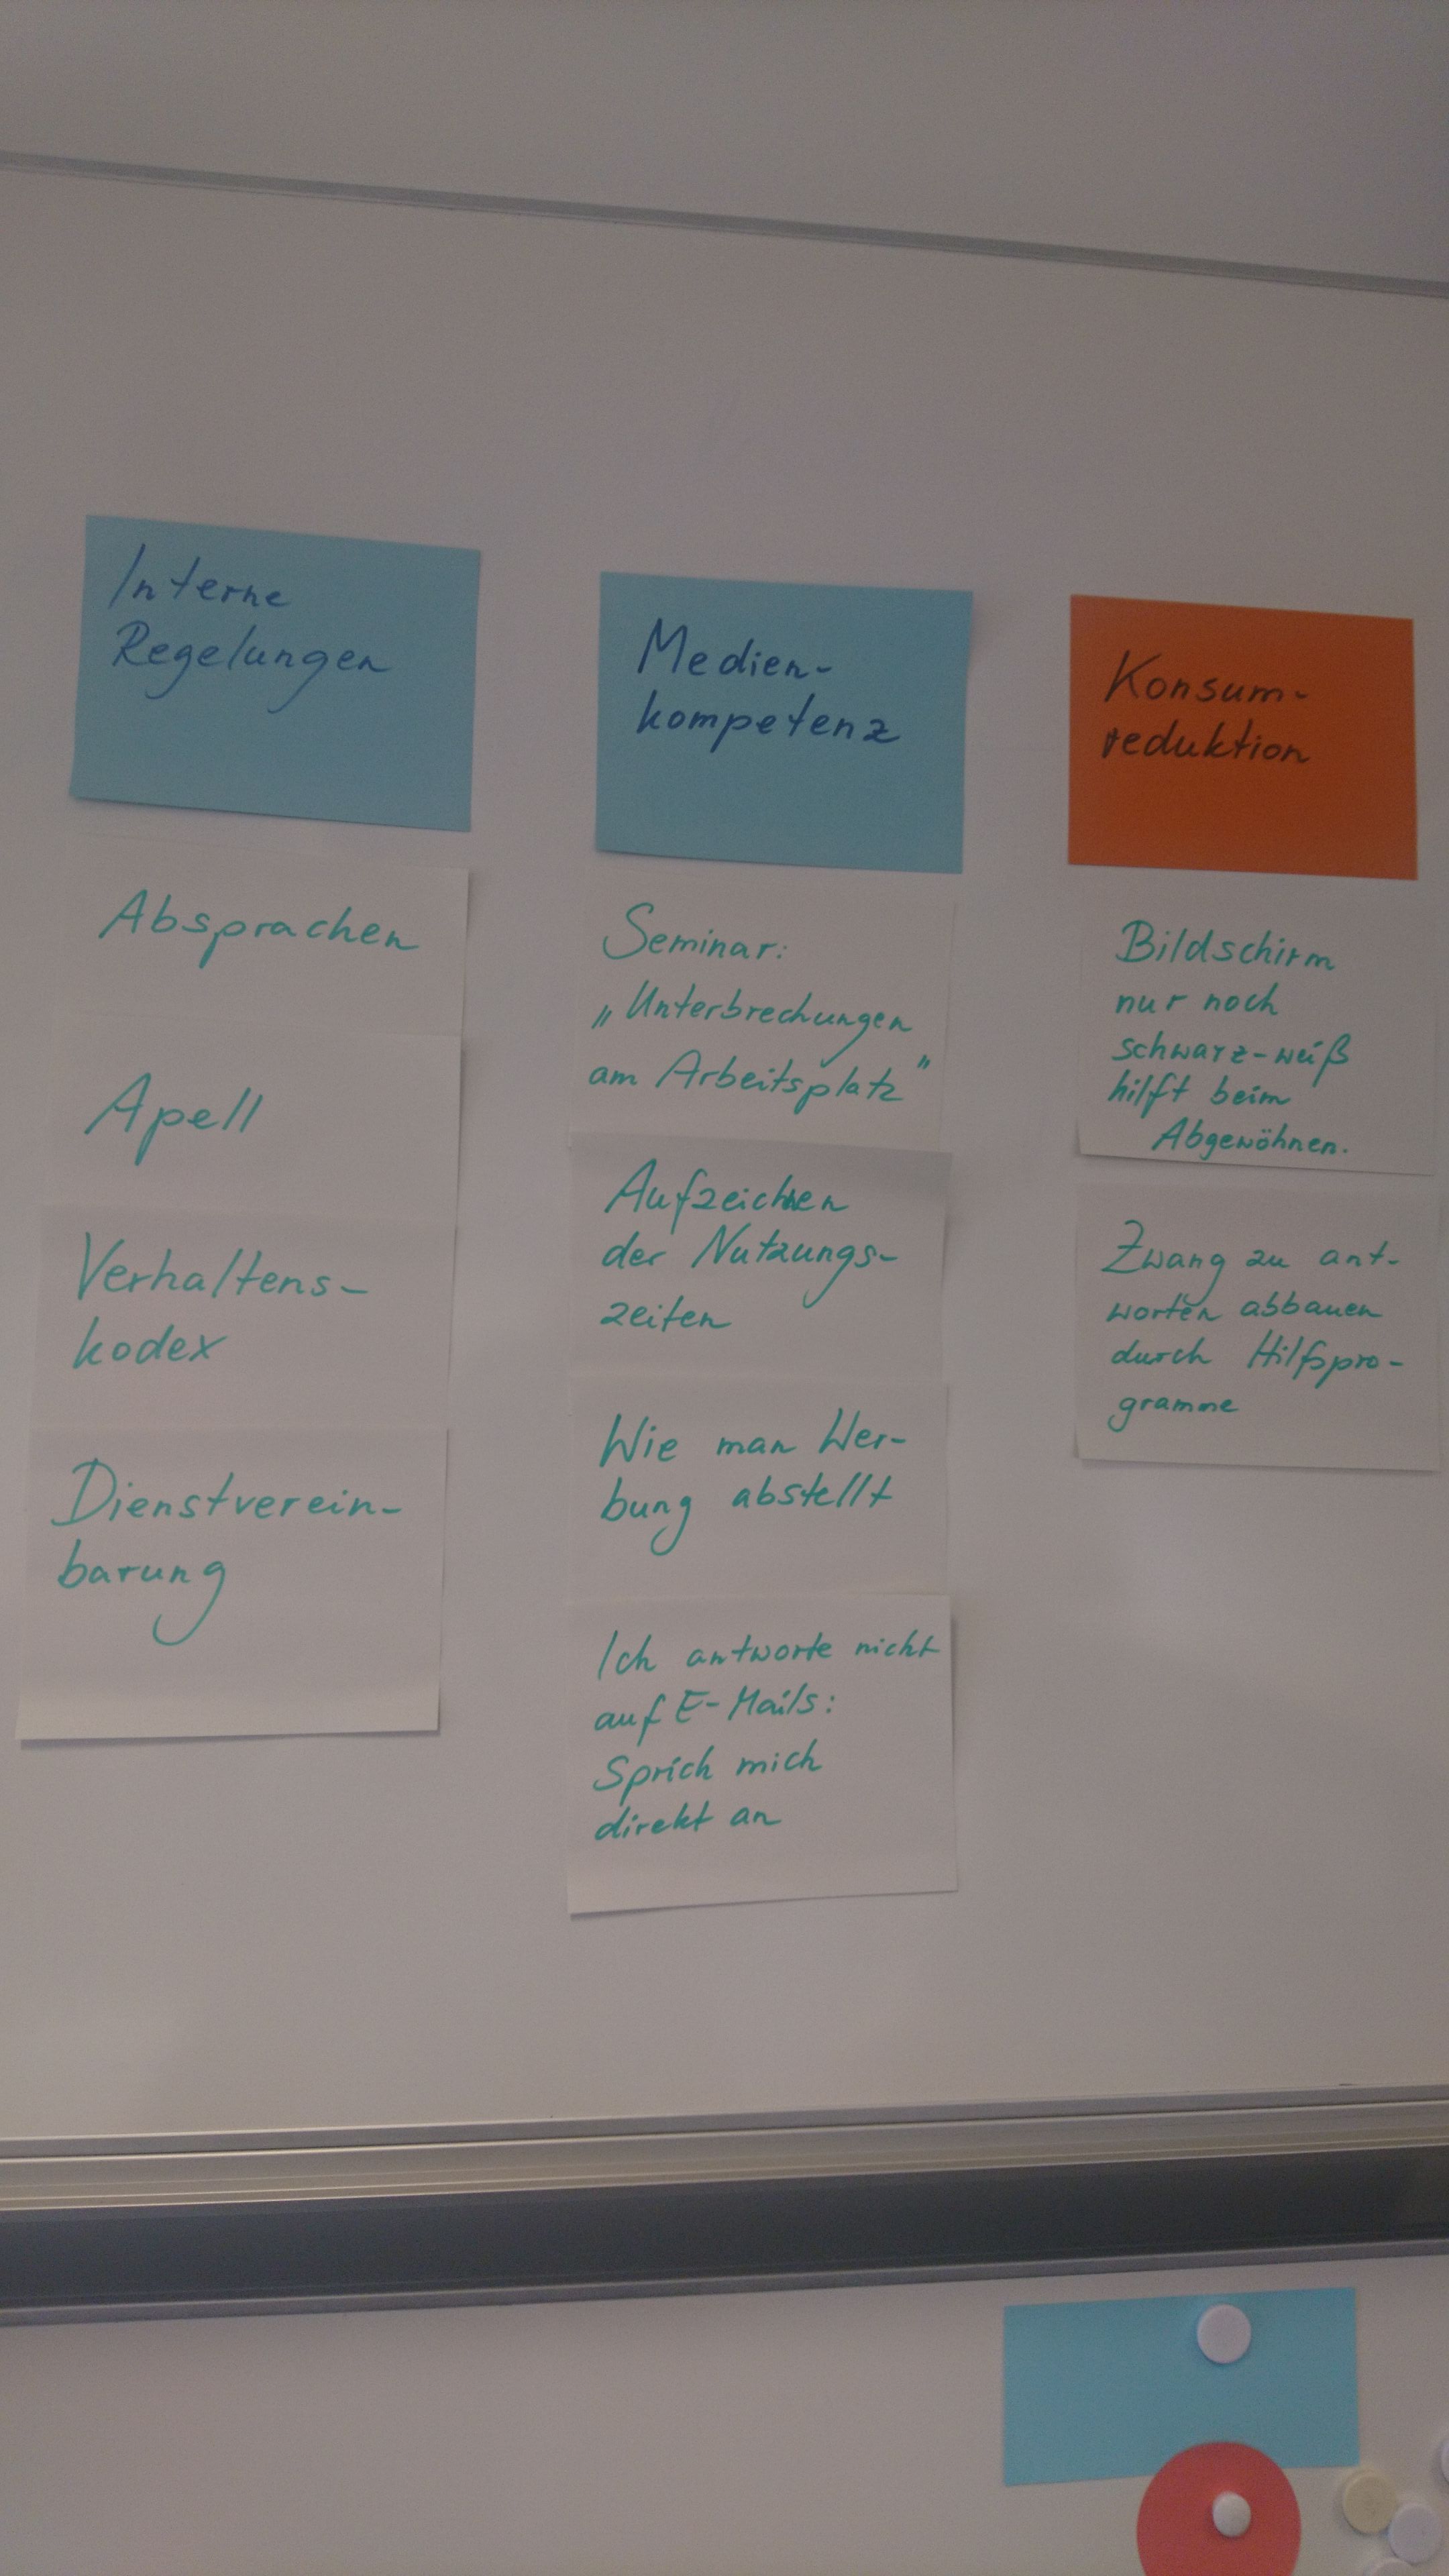 Interne
Regelungen
Absprachen
Apell
Verhaltens-
kodex
Dienstverein-
barung
Medien-
kompetenz
Seminar:
„Unterbrechungen
am Arbeitsplatz"
Aufzeichnen
der Nutzungs-
zeiten
Wie man Wer-
bung abstellt
Ich antworte nicht
auf E-Mails:
Sprich mich
direkt an
Konsum-
reduktion
Bildschirm
nur noch
schwarz-weiß
hilft beim
Abgewöhnen.
Zwang zu ant-
worten abbauen
durch Hilfspro-
gramme